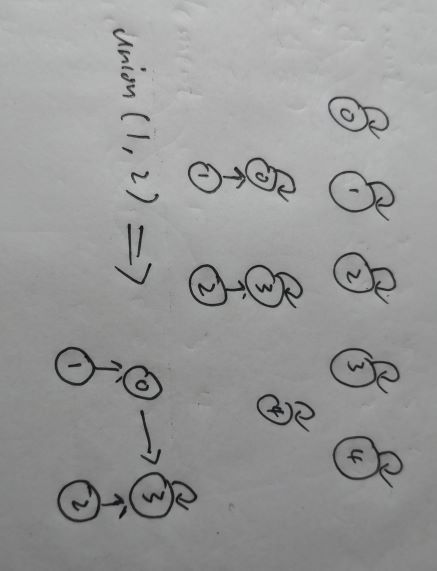 0 1 2 3 4
0 3 4
1 2
union(1,2) => 0 3
1 2